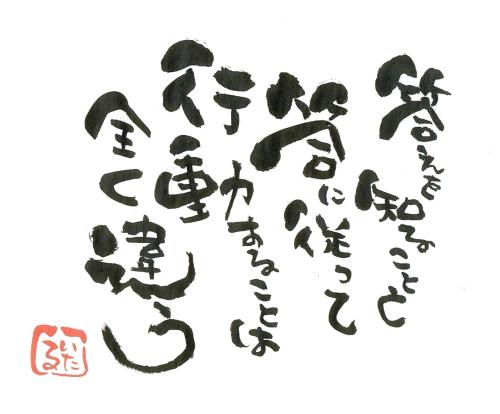 答えを知ることと
答に従って
行動することは
全く違う
いたる